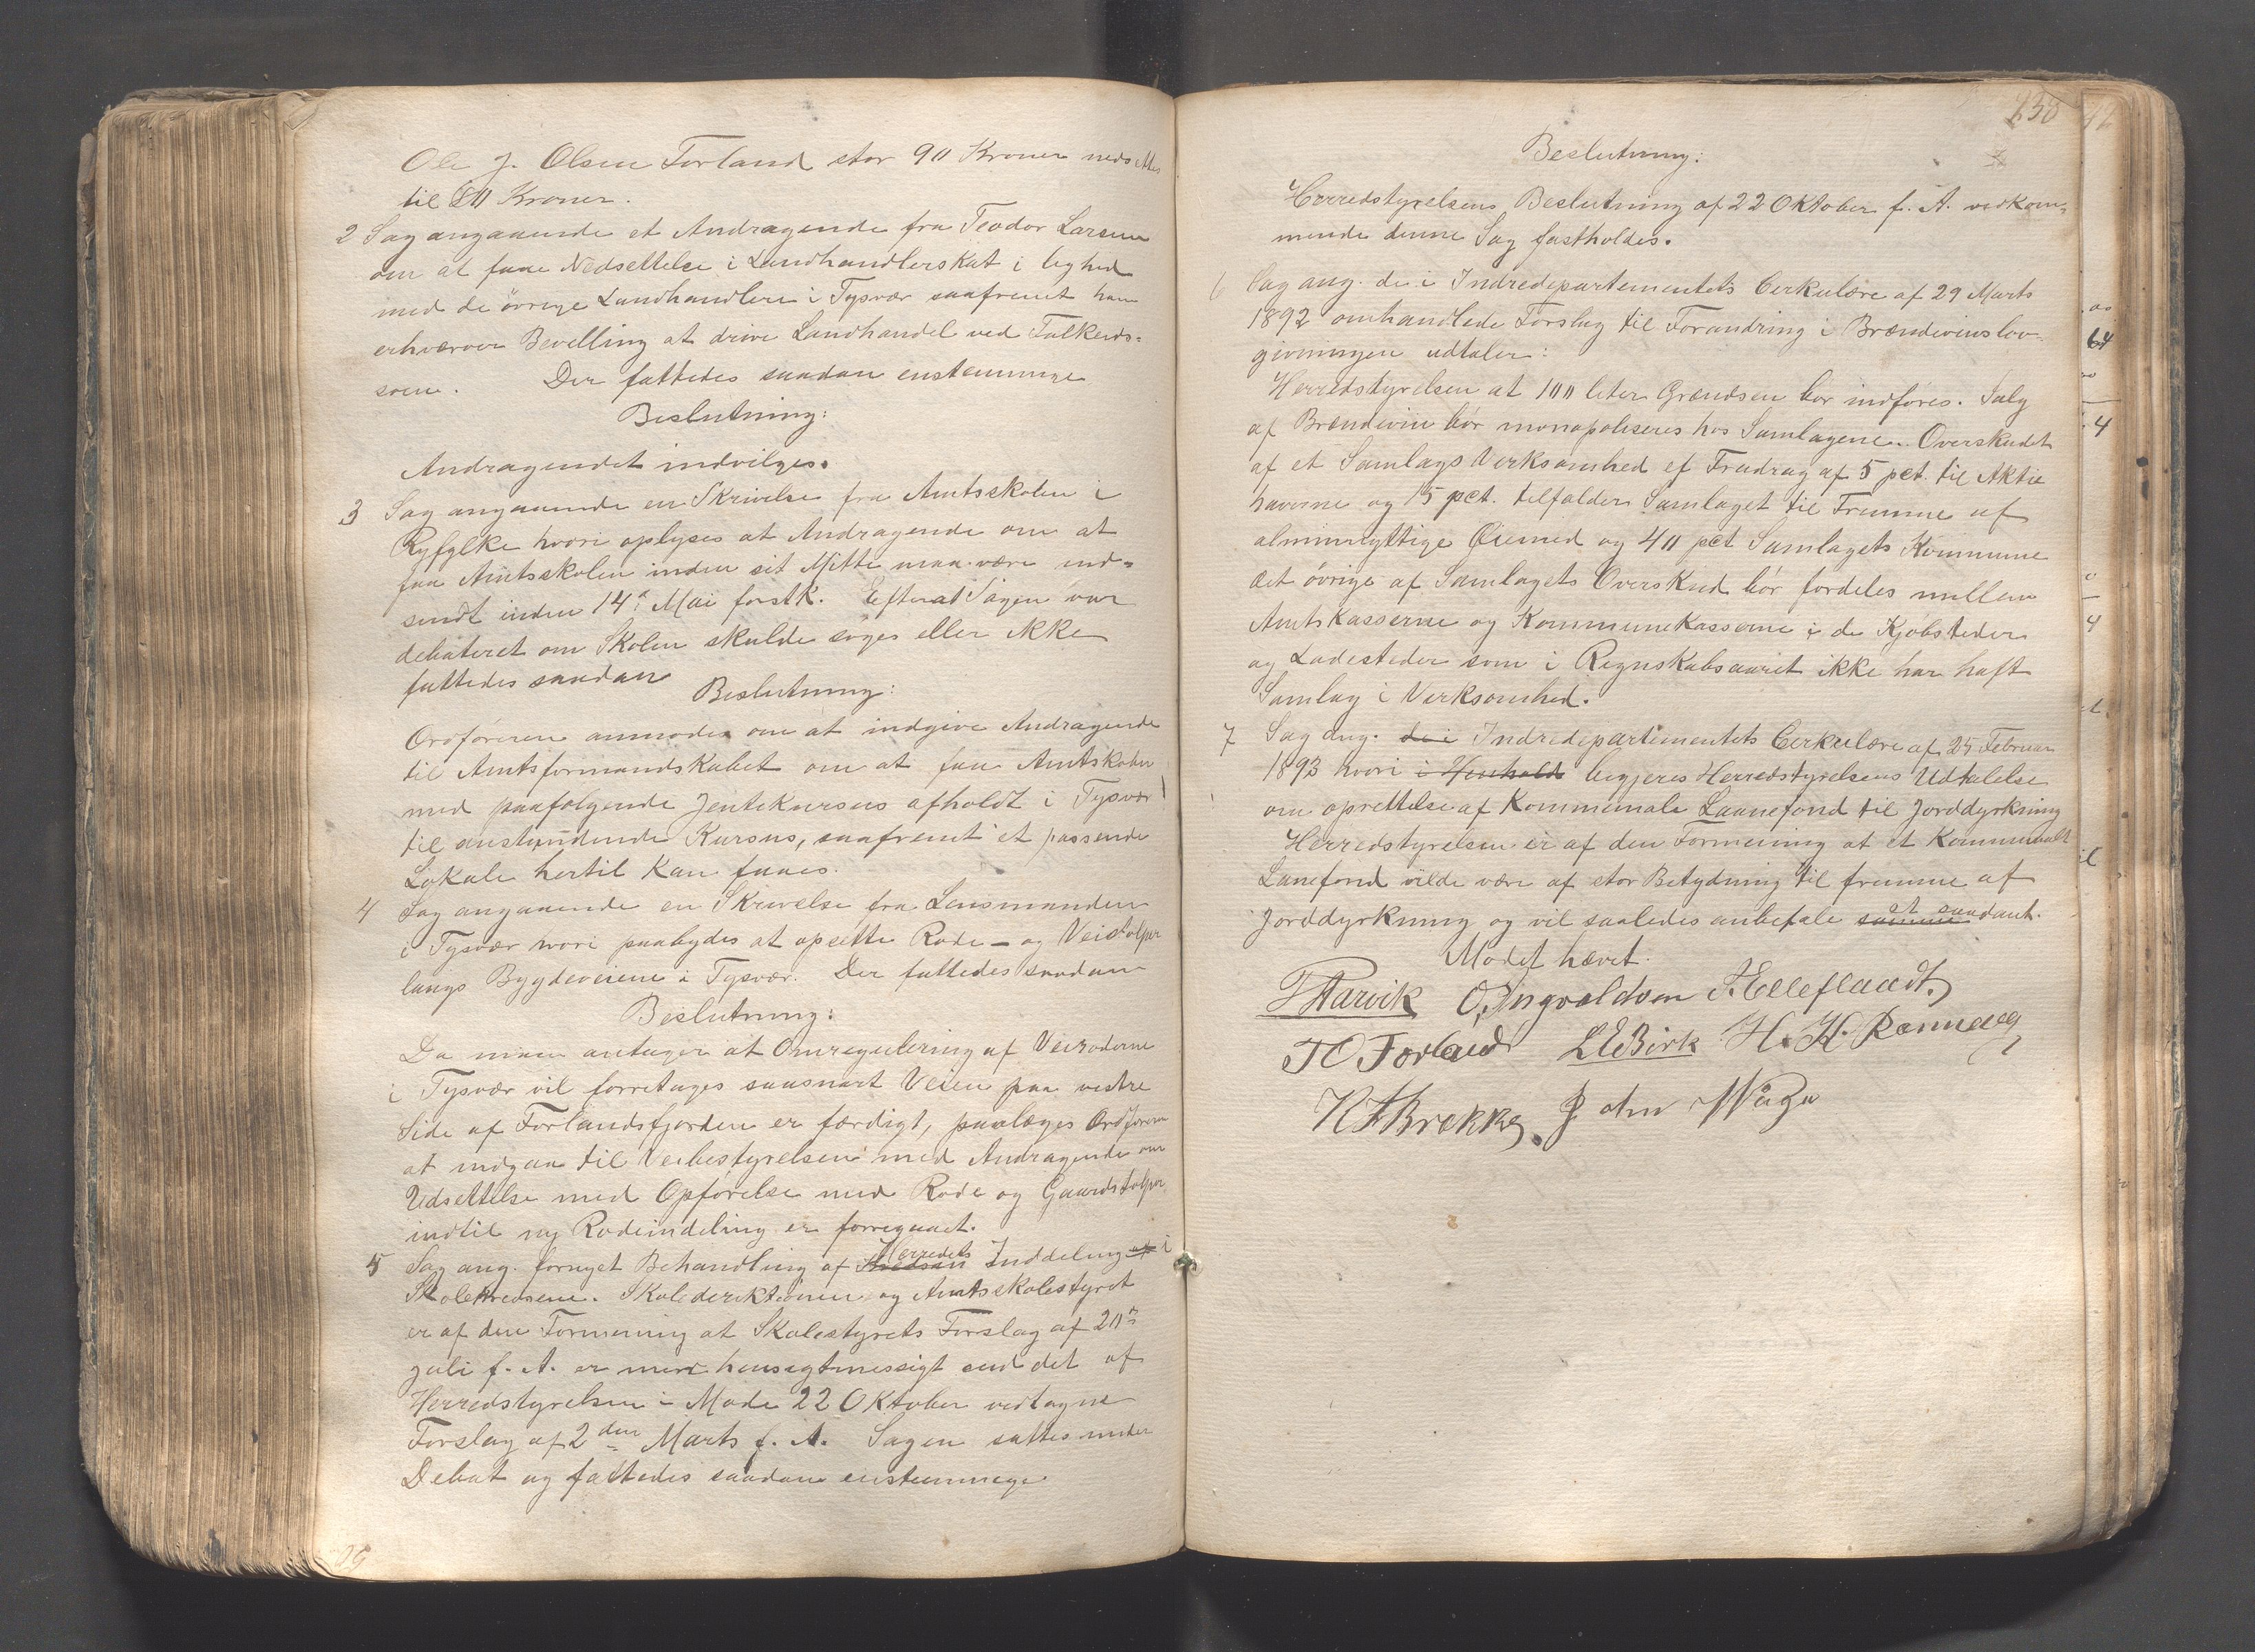 Ole J. Olsen Forland stor 90 Kroner nedsættes
til 80 Kroner.
2 Sag angaaende et Andragende fra Teodor Larsen
om at faae Nedsettelse i Landhandlerskat i lighed
med de övrige Landhandlere i Tysvær saafremt han
erhverver Bevilling at drive Landhandel ved Falkeids=
soen. Der fattedes saadan enstemmige
Beslutning:
Andragendet indvilges.
3 Sag angaaende en Skrivelse fra Amtsskolen i
Ryfylke hvori oplyses at Andragende om at
faa Amtsskolen inden sit Mitte maa være ind=
sendt inden 14de Mai forstk. Efterat Sagen var
debateret om Skolen skulde söges eller ikke
fattedes saadan
Beslutning:
Ordföreren anmodes om at indgive Andragende
til Amtsformandskabet om at faa Amtskolen
med paafølgende Jentekursus afholdt i Tysvær
til anstundende Kursus, saafremt et passende
Lokale hertil kan faaes.
4 Sag angaaende en Skrivelse fra Lensmanden
i Tysvær hvori paabydes at opsette Rode- og Veistolper
langs Bygdeveiene i Tysvær. Der fattedes saadan
Beslutning:
Da man antager at Omregulering af Veiroderne
i Tysvær vil forretages saasnart Veien paa vestre
Side af Forlandsfjorden er færdigt, paalæges Ordforeren
at indgaa til Veibestyrelsen med Andragende om
Udsettelse med Opförelse med Rode og Gaardstolper
indtil ny Rodeindeling er forregaaet.
5 Sag ang. fornyet Behandling af Herredets Inddeling i
Skolekredsene. Skolederiktionen og Amtsskolestyret
er af den Formening at Skolestyrets Forslag af 20de
Juli f. A. er mere hensigtmessigt end det af
Herredstyrelsen i Mode 22 Oktober vedtagne
Forslag af 2den Marts f. A. Sagen sattes under
Debat og fattedes saadan enstemmige
09
230
Beslutning:
Herredstyrelsens Beslutning af 22 Oktober f. A. vedkom=
mende denne Sag fastholdes.
6 Sag ang. de i Indredepartementets Cerkulære af 29 Marts
1892 omhandlede Forslag til Forandring i Brændevinslov-
givningen udtaler:
Herredstyrelsen at 100 liter Grændsen bor indföres. Salg
af Brændevin bör monopoliseres hos Samlagene. Overskudet
af et Samlags Verksomhed ef Fradrag af 5 pct. til Aktie
haverne og 15 pct. tilfalder Samlaget til Fremme af
alminnyttige Øiemed og 40 pct Samlagets Kommune
det övrige af Samlagets Overskud bör fordeles mellem
Amtskasserne og Kommunekasserne i de Kjobsteder
og Ladesteder som i Regnskabsaaret ikke har haft
Samlag i Verksomhed.
7 Sag ang. de i Indredepartementets Cerkulære af 25 Februar
1893 hvori i Henhold begjeres Herredstyrelsens Udtalelse
om oprettelse af Kommunale Laanefond til Jorddyrkning
Herredstyrelsen er af den Formening at et Kommunalt
Lanefond vilde være af stor Betydning til fremme af
Jorddyrkning og vil saaledes anbefale samme et saadant.
Mödet hævet.
T Harvik O. Ingvaldsen S. Elleflaadt.
T O Forland L E Birk H. H. Rønnevig
K H Brekke John Waga